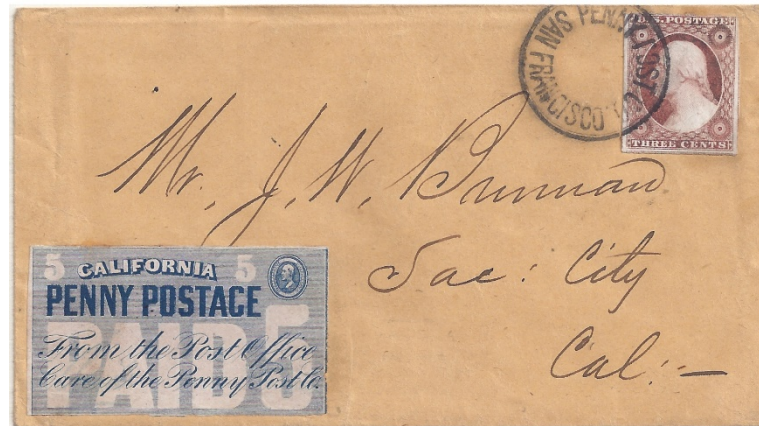 PENNY POST CO.
SAN FRANCISCO.
U.S. POSTAGE
THREE CENTS
Mr. J. W. Brennan
Sac: City
Cal:-
5 CALIFORNIA 5
PENNY POSTAGE
PAID 5
From the Post Office
Care of the Penny Post Co.